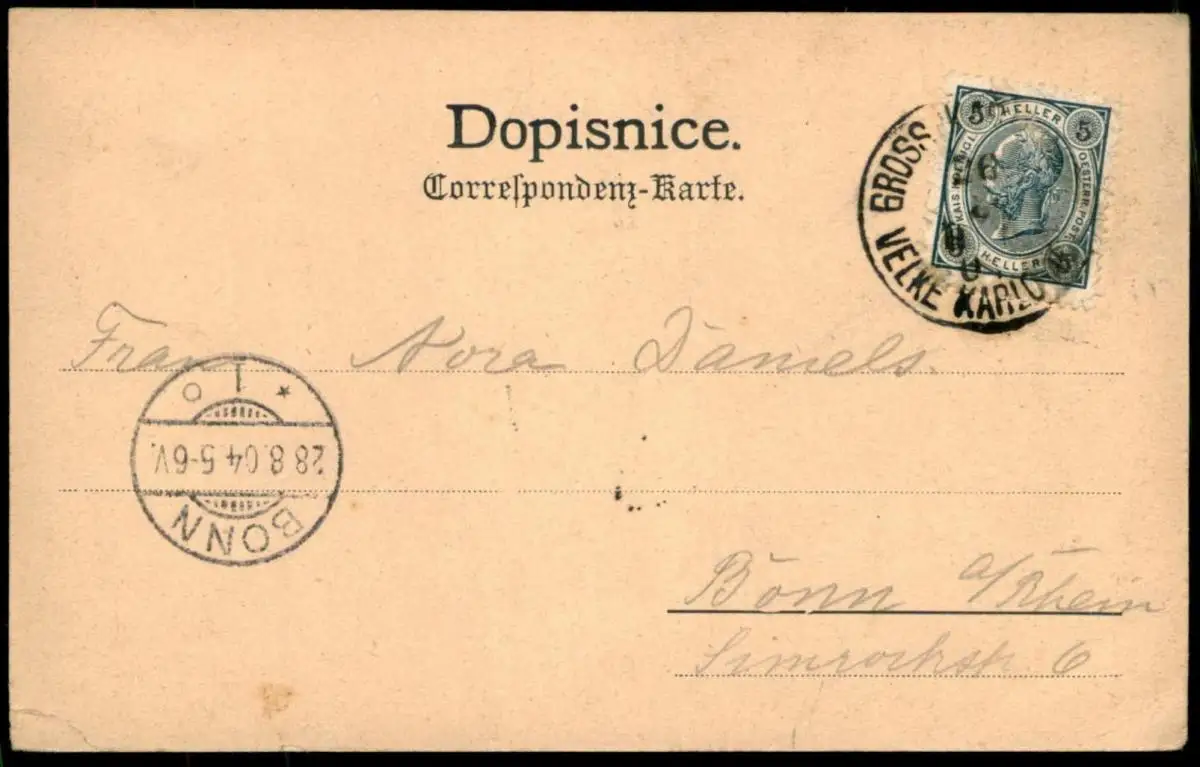 Dopisnice.
Correspondenz-Karte.
5 HELLER 5
KAIS. KÖNIGL. OESTERR. POST
HELLER 5
GROSS
VELKE KARLO
Frau Nora Daniels.
28.8.04.5-6V.
BONN
1
Bonn a/Rhein
Simrockstr. 6